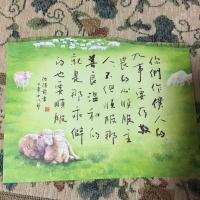 你們作僕人的
凡事要存敬
畏的心順服主
人不但順服那
善良溫和的
就是那乖僻
的也要順服
彼得前書
二章十八節